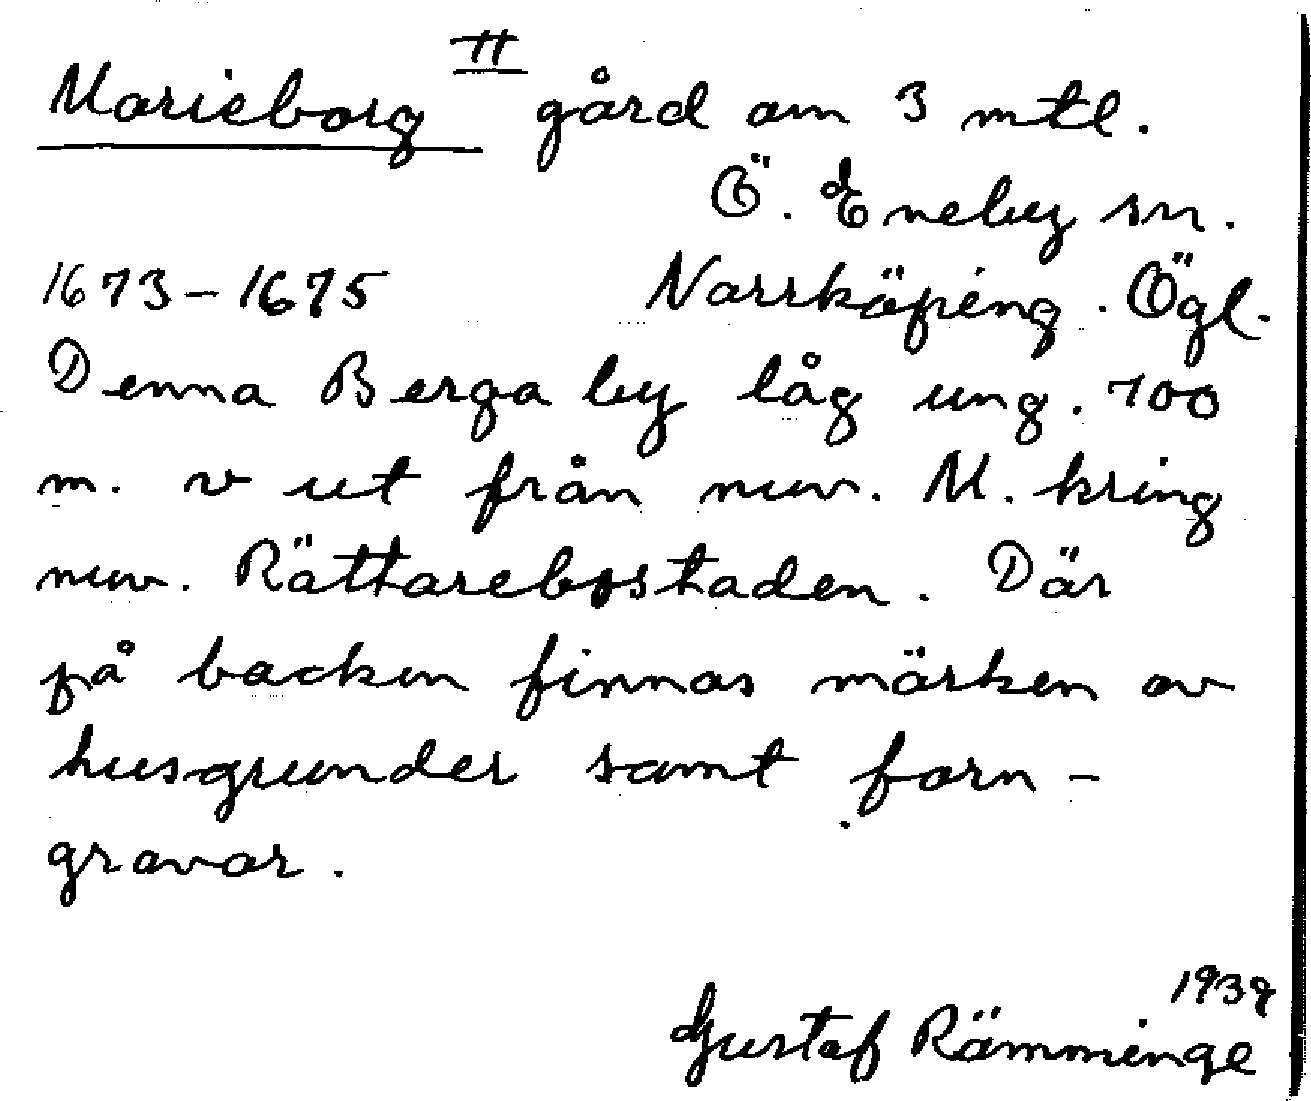 Marieborg II gård om 3 mtl.
Ö. Eneby sn.
1673-1675 Norrköping. Ögl.
Denna Berga by låg ung. 700
m. v ut från nuv. M. kring
nuv. Rättarebostaden. Där
på backen finnas märken av
husgrunder samt forn-
gravar.
Gustaf Rämminge